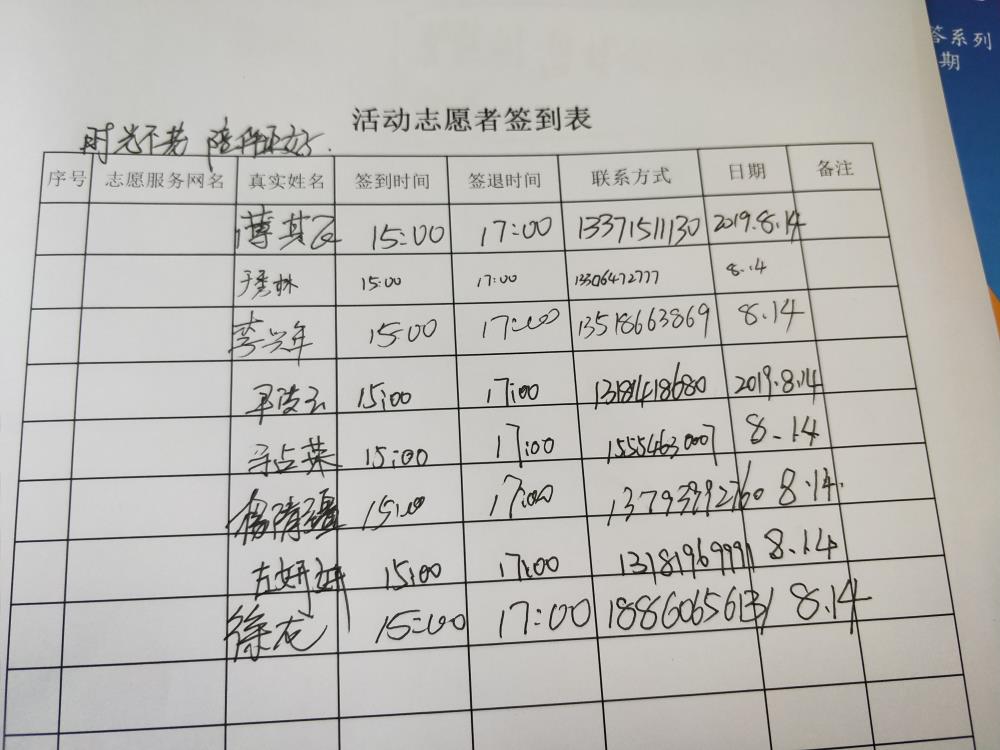 答系列
期
活动志愿者签到表
时光不老 陪伴正好.
序号 志愿服务网名 真实姓名 签到时间 签退时间 联系方式 日期 备注
薄其 15:00 17:00 13371511130 2019.8.14
于秀林 15:00 17:00 13306472777 8.14
李兴年 15:00 17:00 13518663869 8.14
15:00 17:00 13181418680 2019.8.14
占荣 15:00 17:00 15554630007 8.14
杨清疆 15:00 17:00 13793992760 8.14.
左妍妍 15:00 17:00 13181969991 8.14
徐龙 15:00 17:00 18860656131 8.14